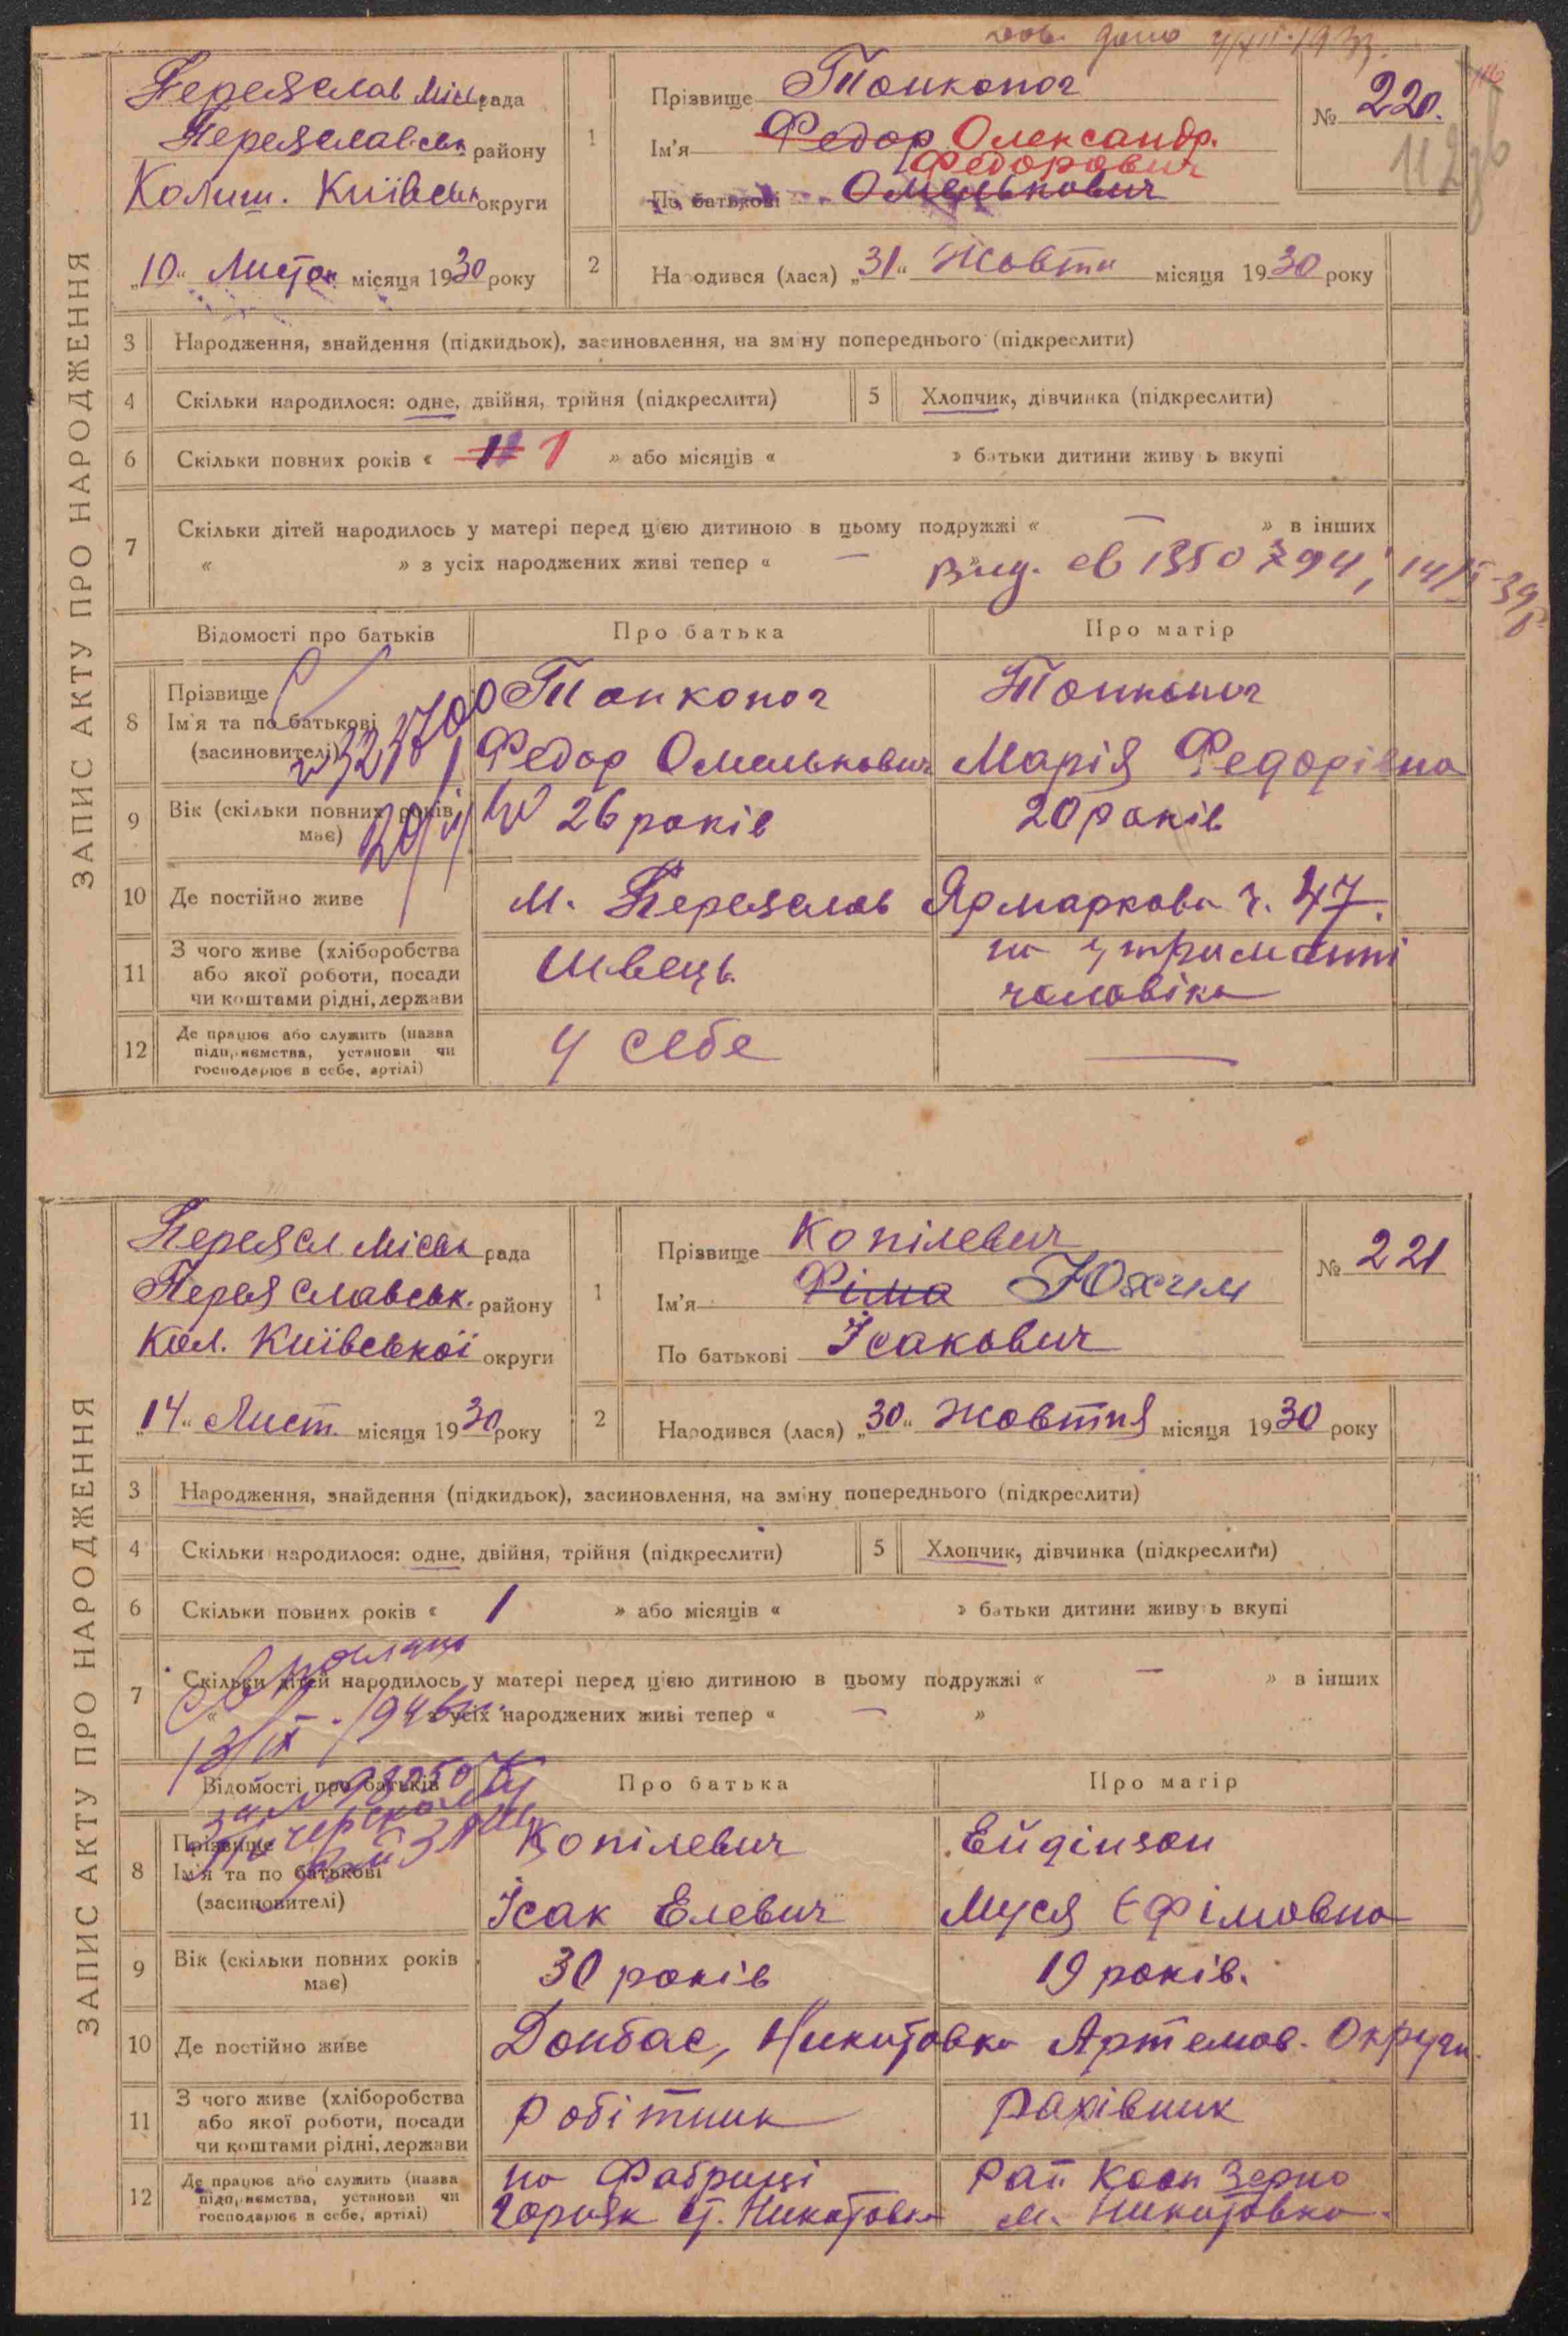 дов. дано
Переяслав Міськ рада
Переяславськ району
Колиш. Київськ округи
„10“ Листоп місяця 1930 року
1
Прізвище Тонконог
Ім'я Федор Олександр.
Федорович
По батькові Омелькович
№ 220.
112
2
Народився (лася) „31“ Жовтн місяця 1930 року
ЗАПИС АКТУ ПРО НАРОДЖЕННЯ
3 Народження, знайдення (підкидьок), засиновлення, на зміну попереднього (підкреслити)
4 Скільки народилося: одне, двійня, трійня (підкреслити)
5 Хлопчик, дівчинка (підкреслити)
6 Скільки повних років « 1 » або місяців « » батьки дитини живуть вкупі
7 Скільки дітей народилось у матері перед цією дитиною в цьому подружжі « — » в інших
« » з усіх народжених живі тепер « — »
Вид. св 1350794, 14/
Відомості про батьків
Про батька
Про матір
8 Прізвище
Ім'я та по батькові
(засиновителі)
Тонконог
Федор Омелькович
Тонконог
Марія Федорівна
9 Вік (скільки повних років має)
26 років
20 років
10 Де постійно живе
м. Переяслав Ярмаркова ч. 47.
11 З чого живе (хліборобства
або якої роботи, посади
чи коштами рідні, держави
Швець
на утриманні
чоловіка
12 Де працює або служить (назва
підприємства, установи чи
господарює в себе, артілі)
у себе
—
Переясл Міськ рада
Переяславськ. району
Кол. Київської округи
„14“ Лист. місяця 1930 року
1
Прізвище Копілевич
Ім'я Фіма Юхим
По батькові Ісакович
№ 221
2
Народився (лася) „30“ Жовтня місяця 1930 року
ЗАПИС АКТУ ПРО НАРОДЖЕННЯ
3 Народження, знайдення (підкидьок), засиновлення, на зміну попереднього (підкреслити)
4 Скільки народилося: одне, двійня, трійня (підкреслити)
5 Хлопчик, дівчинка (підкреслити)
6 Скільки повних років « 1 » або місяців « » батьки дитини живуть вкупі
7 Скільки дітей народилось у матері перед цією дитиною в цьому подружжі « — » в інших
« » з усіх народжених живі тепер « — »
Відомості про батьків
Про батька
Про матір
8 Прізвище
Ім'я та по батькові
(засиновителі)
Копілевич
Ісак Елевич
Ейдінзон
Муся Єфімовна
9 Вік (скільки повних років має)
30 років
19 років.
10 Де постійно живе
Донбас, Никитовка Артемов. Округи.
11 З чого живе (хліборобства
або якої роботи, посади
чи коштами рідні, держави
робітник
рахівник
12 Де працює або служить (назва
підприємства, установи чи
господарює в себе, артілі)
на Фабриці
Горняк ст. Никитовка
Рай Кооп Зерно
м. Никитовка.